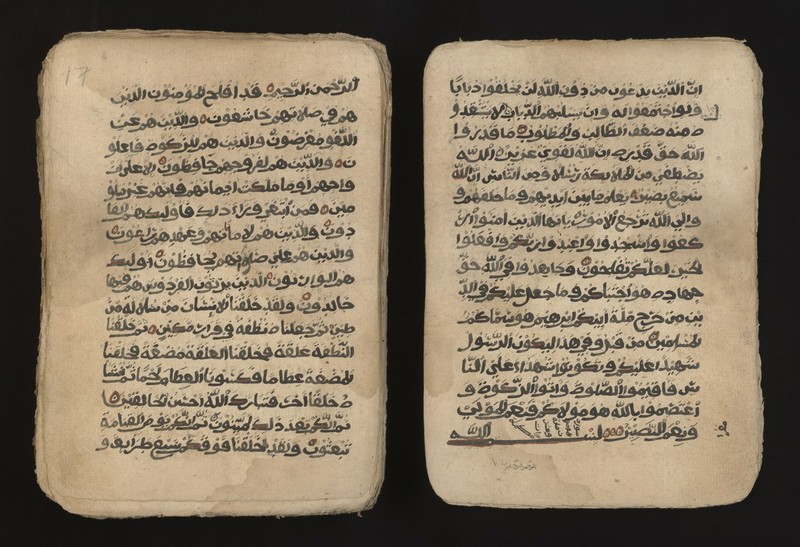 ان الذين يدعون من دون الله لن يخلقوا ذبابا
ولو اجتمعوا له وان يسلبهم الذباب لا يستنقذو
ه منه ضعف الطالب والمطلوب ما قدروا
الله حق قدره ان الله لقوي عزيز الله
يصطفي من الملائكة رسلا ومن الناس ان الله
سميع بصير يعلم ما بين ايديهم وما خلفهم و
والي الله ترجع الامور يايها الذين امنوا ار
كعوا واسجدوا واعبدوا ربكم وافعلوا
الخير لعلكم تفلحون وجاهدوا في الله حق
جهاده هو اجتباكم وما جعل عليكم في الد
ين من حرج ملة ابيكم ابرهيم هو سماكم
المسلمين من قبل وفي هذا ليكون الرسول
شهيدا عليكم وتكونوا شهداء علي النا
س فاقيموا الصلوة واتوا الزكوة و
اعتصموا بالله هو مولاكم فنعم المولي
ونعم النصير بسم الله
17
الرحمن الرحيم قد افلح المومنون الذين
هم في صلاتهم خاشعون والذين هم عن
اللغو معرضون والذين هم للزكوة فاعلو
ن والذين هم لفروجهم حافظون الا علي از
واجهم او ما ملكت ايمانهم فانهم غير ملو
مين فمن ابتغي وراء ذلك فاوليك هم العا
دون والذين هم لاماناتهم وعهدهم راعون
والذين هم علي صلاتهم يحافظون اوليك
هم الوارثون الذين يرثون الفردوس هم فيها
خالدون ولقد خلقنا الانسان من سلالة من
طين ثم جعلناه نطفة في قرار مكين ثم خلقنا
النطفة علقة فخلقنا العلقة مضغة فخلقنا
المضغة عظاما فكسونا العظام لحما ثم انشانا
ه خلقا اخر فتبارك الله احسن الخالقين
ثم انكم بعد ذلك لميتون ثم انكم يوم القيامة
تبعثون ولقد خلقنا فوقكم سبع طرايق و